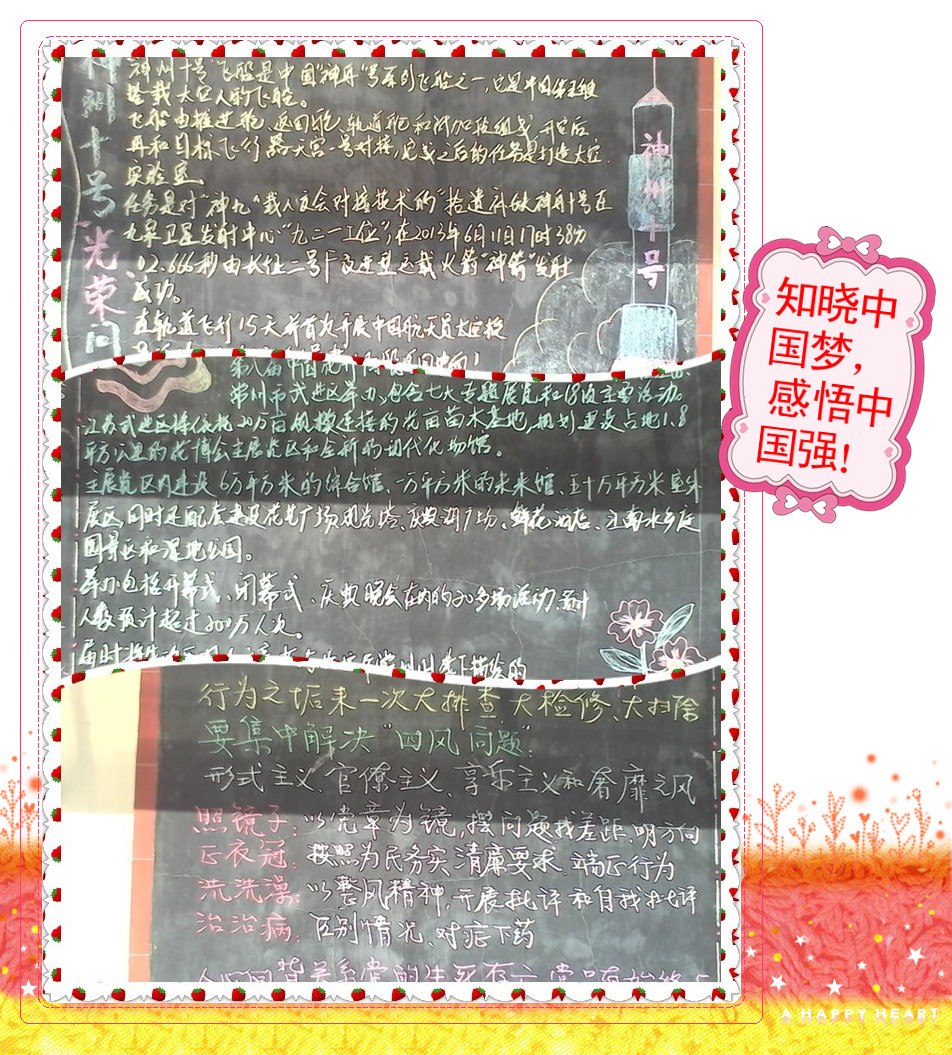 神州十号光荣问
神州十号飞船是中国"神舟"号系列飞船之一,它是中国第五艘
搭载太空人的飞船。
飞船由推进舱、返回舱、轨道舱和附加段组成。升空后
再和目标飞行器天宫一号对接,完成之后的任务是打造太空
实验室。
任务是对"神九"载人交会对接技术的"拾遗补缺"神舟十号在
九泉卫星发射中心"九二一工位",在2013年6月11日17时38分
02.666秒由长征二号F改进型运载火箭"神箭"发射
成功。
在轨道飞行15天并首次开展中国航天员太空授
神州十号
常州市武进区举办,包含七大专题展览和18项主要活动。
江苏武进区将依托20万亩规模连接的花卉苗木基地,规划建设占地1.8
平方公里的花博会主展览区和全新的现代化场馆。
主展览区内建设6万平方米的综合馆、一万平方米的未来馆、五十万平方米室外
展区,同时还配套建设花艺广场观光塔、庆典湖广场、鲜花酒店、江南水乡庭
园景区和湿地公园。
举办包括开幕式、闭幕式、庆典晚会在内的20多场活动,预计
人数预计超过200万人次。
行为之垢来一次大排查、大检修、大扫除
要集中解决"四风问题":
形式主义、官僚主义、享乐主义和奢靡之风
照镜子:以党章为镜,摆问题找差距,明方向
正衣冠:按照为民务实清廉要求,端正行为
洗洗澡:以整风精神,开展批评和自我批评
治治病:区别情况、对症下药
知晓中
国梦,
感悟中
国强!
A HAPPY HEART